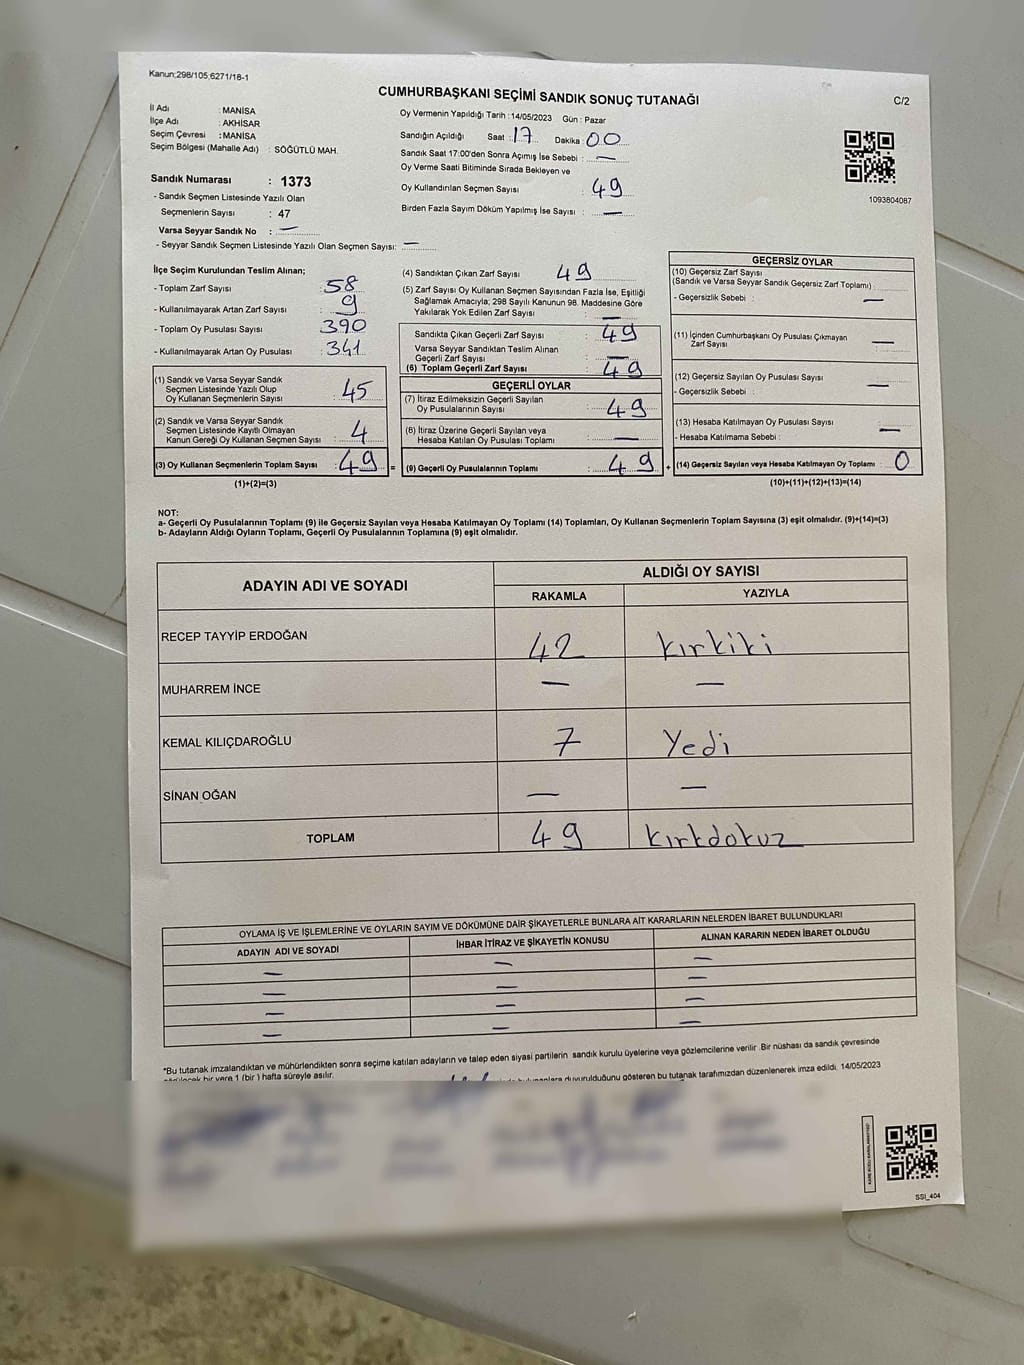 Kanun:298/105,6271/18-1
CUMHURBAŞKANI SEÇİMİ SANDIK SONUÇ TUTANAĞI
C/2
İl Adı : MANİSA
İlçe Adı : AKHİSAR
Seçim Çevresi : MANİSA
Seçim Bölgesi (Mahalle Adı) : SÖĞÜTLÜ MAH.
Sandık Numarası : 1373
- Sandık Seçmen Listesinde Yazılı Olan
Seçmenlerin Sayısı : 47
Varsa Seyyar Sandık No : —
- Seyyar Sandık Seçmen Listesinde Yazılı Olan Seçmen Sayısı: —
Oy Vermenin Yapıldığı Tarih : 14/05/2023 Gün : Pazar
Sandığın Açıldığı Saat : 17 Dakika : 00
Sandık Saat 17:00'den Sonra Açımış İse Sebebi : —
Oy Verme Saati Bitiminde Sırada Bekleyen ve
Oy Kullandırılan Seçmen Sayısı : 49
Birden Fazla Sayım Döküm Yapılmış İse Sayısı : —
1093804087
İlçe Seçim Kurulundan Teslim Alınan;
- Toplam Zarf Sayısı : 58
- Kullanılmayarak Artan Zarf Sayısı : 9
- Toplam Oy Pusulası Sayısı : 390
- Kullanılmayarak Artan Oy Pusulası : 341
(1) Sandık ve Varsa Seyyar Sandık
Seçmen Listesinde Yazılı Olup
Oy Kullanan Seçmenlerin Sayısı : 45
(2) Sandık ve Varsa Seyyar Sandık
Seçmen Listesinde Kayıtlı Olmayan
Kanun Gereği Oy Kullanan Seçmen Sayısı : 4
(3) Oy Kullanan Seçmenlerin Toplam Sayısı : 49 =
(1)+(2)=(3)
(4) Sandıktan Çıkan Zarf Sayısı 49
(5) Zarf Sayısı Oy Kullanan Seçmen Sayısından Fazla İse, Eşitliği
Sağlamak Amacıyla; 298 Sayılı Kanunun 98. Maddesine Göre
Yakılarak Yok Edilen Zarf Sayısı : —
Sandıkta Çıkan Geçerli Zarf Sayısı : 49
Varsa Seyyar Sandıktan Teslim Alınan
Geçerli Zarf Sayısı : —
(6) Toplam Geçerli Zarf Sayısı : 49
GEÇERLİ OYLAR
(7) İtiraz Edilmeksizin Geçerli Sayılan
Oy Pusulalarının Sayısı : 49
(8) İtiraz Üzerine Geçerli Sayılan veya
Hesaba Katılan Oy Pusulası Toplamı : —
(9) Geçerli Oy Pusulalarının Toplamı : 49 +
GEÇERSİZ OYLAR
(10) Geçersiz Zarf Sayısı
(Sandık ve Varsa Seyyar Sandık Geçersiz Zarf Toplamı) :
- Geçersizlik Sebebi : —
(11) İçinden Cumhurbaşkanı Oy Pusulası Çıkmayan
Zarf Sayısı : —
(12) Geçersiz Sayılan Oy Pusulası Sayısı : —
- Geçersizlik Sebebi :
(13) Hesaba Katılmayan Oy Pusulası Sayısı : —
- Hesaba Katılmama Sebebi :
(14) Geçersiz Sayılan veya Hesaba Katılmayan Oy Toplamı : 0
(10)+(11)+(12)+(13)=(14)
NOT:
a- Geçerli Oy Pusulalarının Toplamı (9) ile Geçersiz Sayılan veya Hesaba Katılmayan Oy Toplamı (14) Toplamları, Oy Kullanan Seçmenlerin Toplam Sayısına (3) eşit olmalıdır. (9)+(14)=(3)
b- Adayların Aldığı Oyların Toplamı, Geçerli Oy Pusulalarının Toplamına (9) eşit olmalıdır.
ADAYIN ADI VE SOYADI
ALDIĞI OY SAYISI
RAKAMLA YAZIYLA
RECEP TAYYİP ERDOĞAN 42 kırkiki
MUHARREM İNCE — —
KEMAL KILIÇDAROĞLU 7 Yedi
SİNAN OĞAN — —
TOPLAM 49 kırkdokuz
OYLAMA İŞ VE İŞLEMLERİNE VE OYLARIN SAYIM VE DÖKÜMÜNE DAİR ŞİKAYETLERLE BUNLARA AİT KARARLARIN NELERDEN İBARET BULUNDUKLARI
ADAYIN ADI VE SOYADI İHBAR İTİRAZ VE ŞİKAYETİN KONUSU ALINAN KARARIN NEDEN İBARET OLDUĞU
— — —
— — —
— — —
— — —
*Bu tutanak imzalandıktan ve mühürlendikten sonra seçime katılan adayların ve talep eden siyasi partilerin sandık kurulu üyelerine veya gözlemcilerine verilir .Bir nüshası da sandık çevresinde
bir yere 1 (bir ) hafta süreyle asılır.
duyurulduğunu gösteren bu tutanak tarafımızdan düzenlenerek imza edildi. 14/05/2023
SSI_404